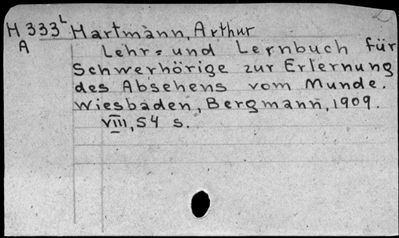 H 333 L Hartmann, Arthur
A
Lehr- und Lernbuch für
Schwerhörige zur Erlernung
des Absehens vom Munde.
Wiesbaden, Bergmann, 1909.
VIII, 54 s.